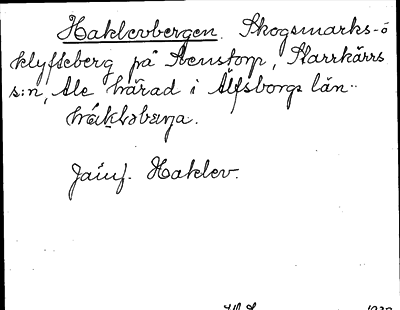 Haklevbergen. Skogsmarks- o
klyfteberg på Svenstorp, Starrkärrs
s:n, Ale härad i Älfsborgs län.
Jämf. Haklev.